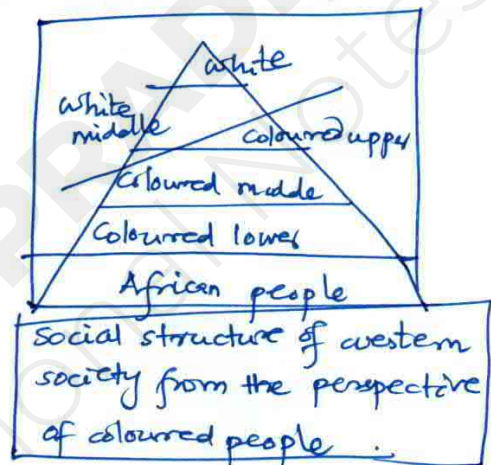 white
white
middle
coloured upper
Coloured middle
Coloured lower
African people
Social structure of western
society from the perspective
of coloured people .